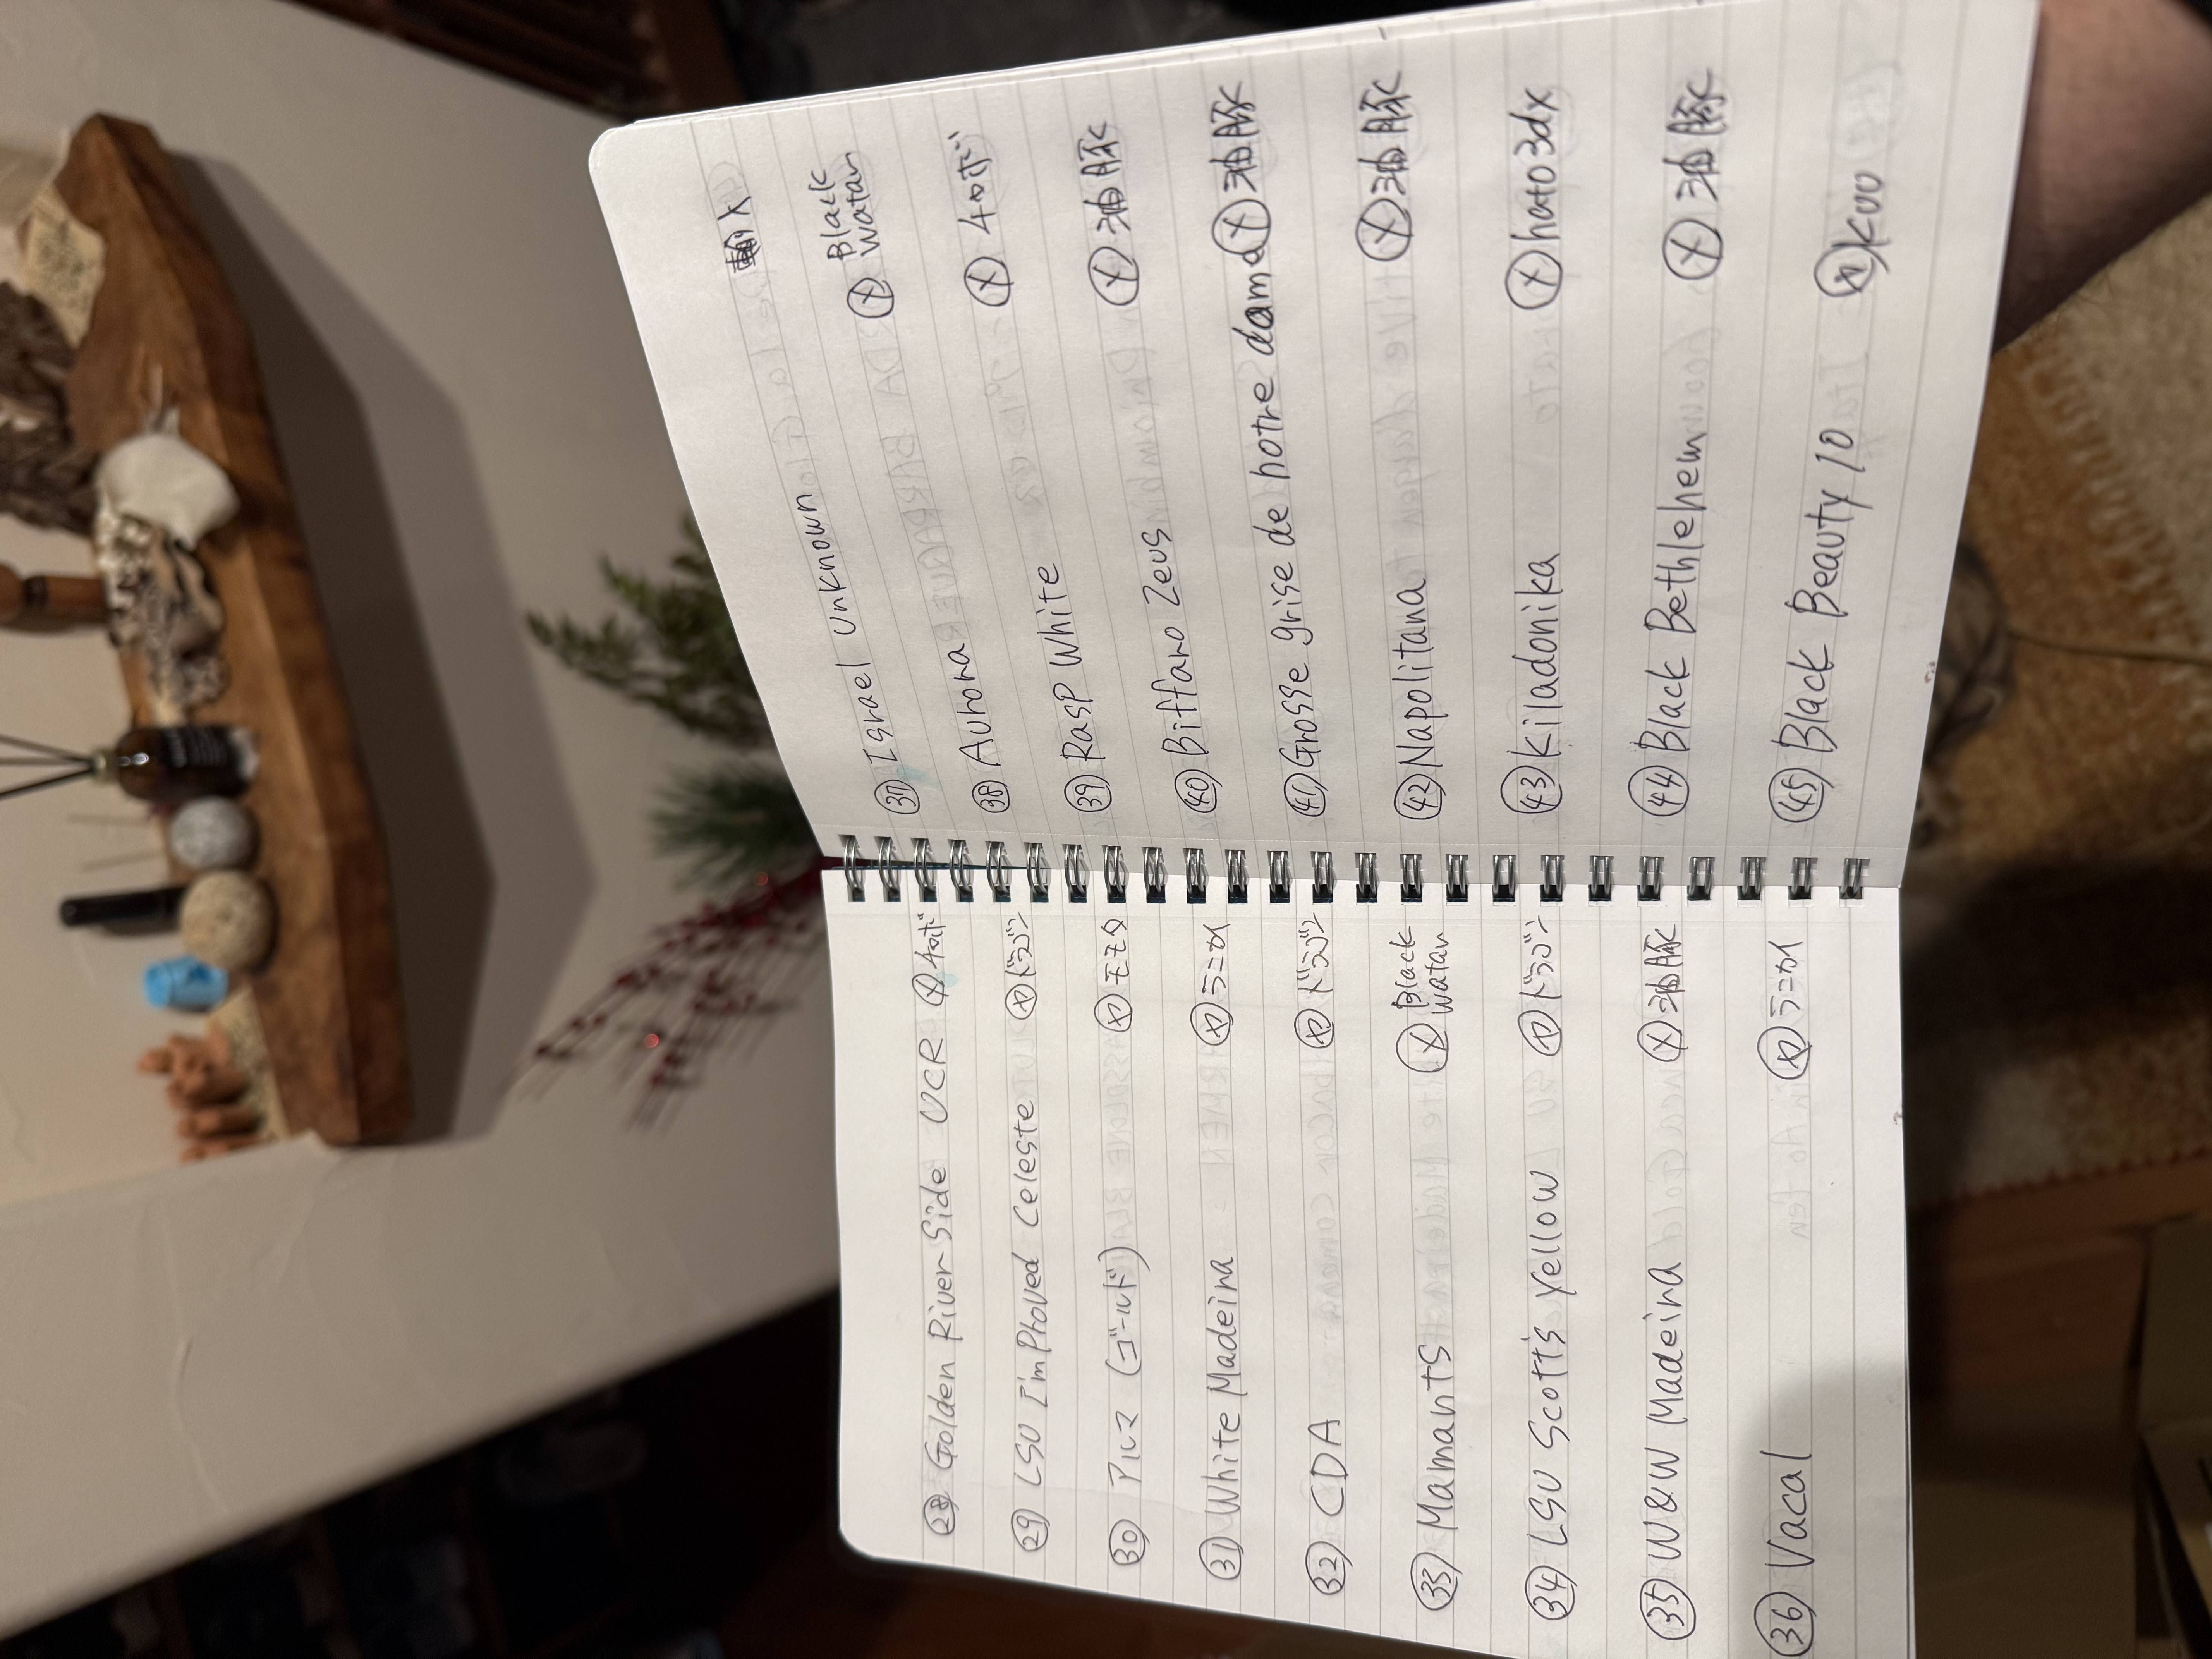 ㉘ Golden River Side UCR メ
㉙ LSU Improved Celeste ヤ ドラゴン
㉚ アルマ (ゴールド) ヤ モモタ
㉛ White Madeira ヤ ラニカイ
㉜ CDA ヤ ドラゴン
㉝ MamantS メ Black watan
㉞ LSU Scott's Yellow ヤ ドラゴン
㉟ W&W Madeira メ 油豚
㊱ Vacal ヤ ラニカイ
輸入
㊲ Israel Unknown メ Black watan
㊳ Aurora メ
㊴ RasP White メ 油豚
㊵ Biffaro Zeus
㊶ Grosse grise de notre dame メ 油豚
㊷ Napolitana メ 油豚
㊸ kiladonika メ hato3dx
㊹ Black Bethlehem メ 油豚
㊺ Black Beauty 10 ヤ kuu